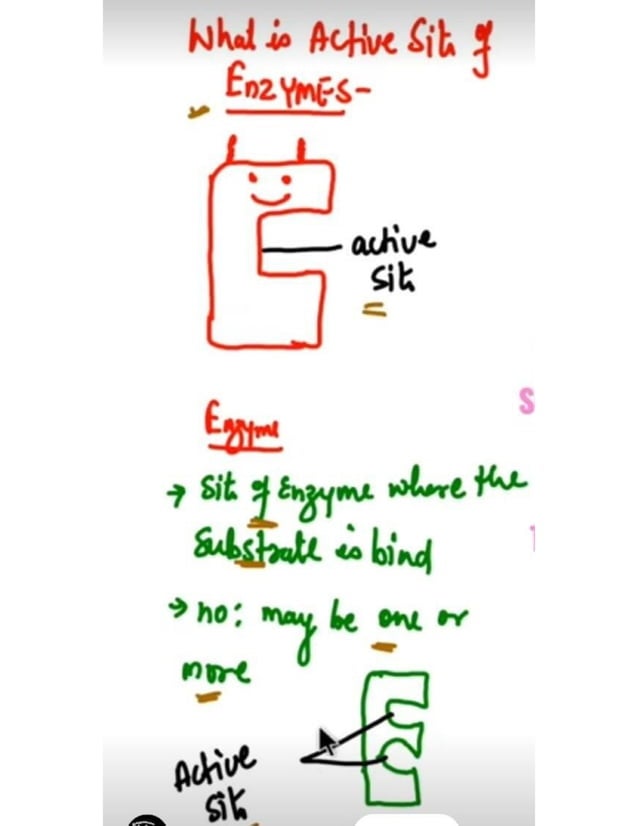 What is Active Site of
ENZYMES-
active
site
Enzyme
→ Site of Enzyme where the
Substrate is bind
→ no: may be one or
more
Active
site
S